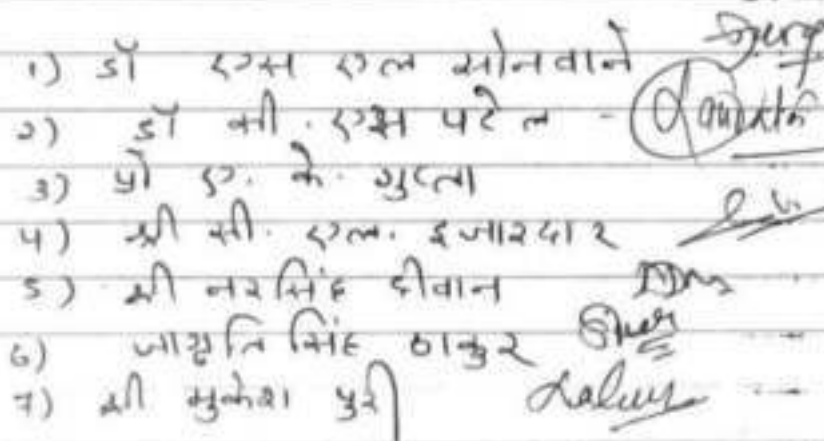 1) डॉ एस एल सोनवाने
2) डॉ सी. एस पटेल -
3) प्रो ए. के. गुप्ता
4) श्री सी. एल. इजारदार
5) श्री नरसिंह दीवान
6) जागृति सिंह ठाकुर
7) श्री मुकेश पुरी